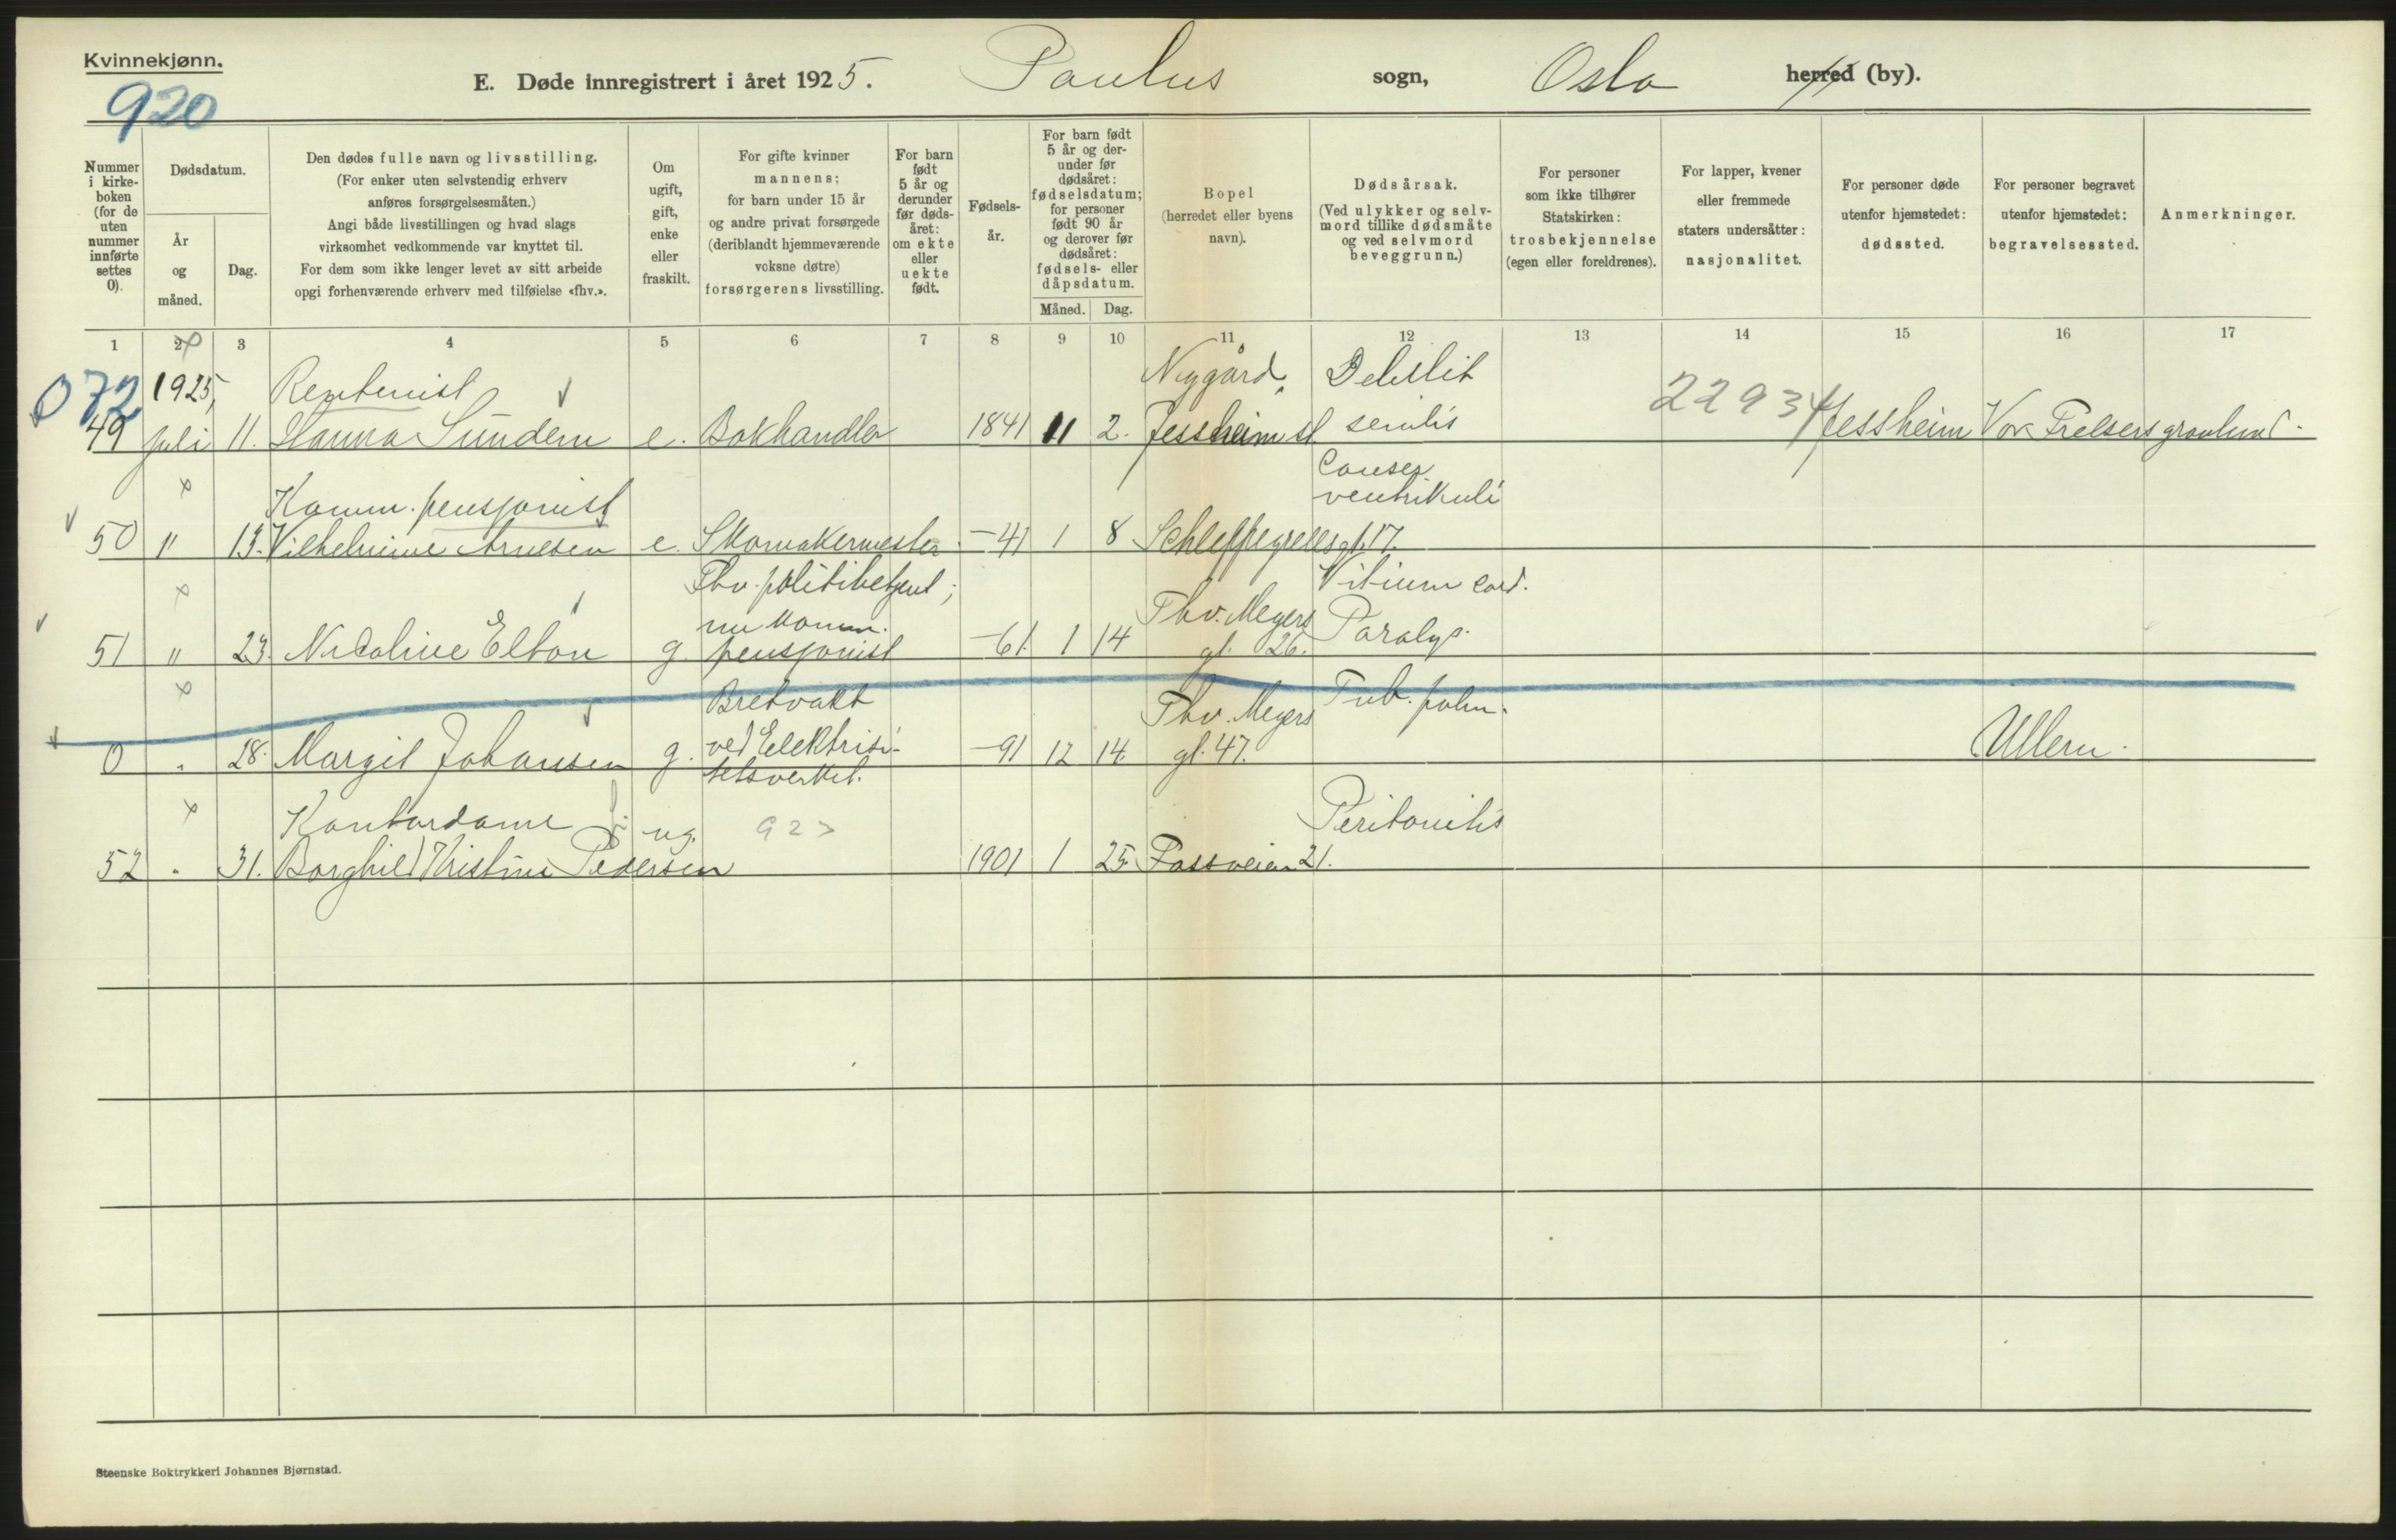 Kvinnekjønn.
920
E. Døde innregistrert i året 1925. Paulus sogn, Oslo herred (by).
Nummer i kirke- boken (for de uten nummer innførte settes 0).
Dødsdatum.
År og måned.
Dag.
Den dødes fulle navn og livsstilling.
(For enker uten selvstendig erhverv
anføres forsørgelsesmåten.)
Angi både livsstillingen og hvad slags
virksomhet vedkommende var knyttet til.
For dem som ikke lenger levet av sitt arbeide
opgi forhenværende erhverv med tilføielse «fhv.».
Om ugift, gift, enke eller fraskilt.
For gifte kvinner
mannens;
for barn under 15 år
og andre privat forsørgede
(deriblandt hjemmeværende
voksne døtre)
forsørgerens livsstilling.
For barn født 5 år og derunder før døds- året: om ekte eller uekte født.
Fødsels- år.
For barn født
5 år og der-
under før
dødsåret:
fødselsdatum;
for personer
født 90 år
og derover før
dødsåret:
fødsels- eller
dåpsdatum.
Måned. Dag.
Bopel
(herredet eller byens
navn).
Dødsårsak.
(Ved ulykker og selv-
mord tillike dødsmåte
og ved selvmord
beveggrunn.)
For personer
som ikke tilhører
Statskirken:
trosbekjennelse
(egen eller foreldrenes).
For lapper, kvener
eller fremmede
staters undersåtter:
nasjonalitet.
For personer døde
utenfor hjemstedet:
dødssted.
For personer begravet
utenfor hjemstedet:
begravelsessted.
Anmerkninger.
1 2 3 4 5 6 7 8 9 10 11 12 13 14 15 16 17
072 1925, Rentenist Nygård, Debilit 22934
49 juli 11. Hanna Sundem e. Bokhandler 1841 11 2. Jessheim st. senilis Jessheim Vor Frelsers gravlund.
Komm. pensjonist Cancer ventrikuli
50 " 13. Vilhelmine Arnesen e. Skomakermester. -41 1 8 Schleppegrellsgt. 17.
Fhv. politibetjent; nu komm. Thv. Meyers Vitium cord.
51 " 23. Nicoline Elton g. pensjonist -61. 1 14 gt. 26. Paralys.
Bretvakt Thv. Meyers Tub. pulm.
0 . 28. Margit Johansen g. ved Elektrisi- -91 12 14. gt. 47. Ullern.
tetsverket.
Kontordame ug. 92 Peritonitis
52 . 31. Borghild Kristine Pedersen 1901 1 25. Fossveien 21.
Steenske Boktrykkeri Johannes Bjørnstad.